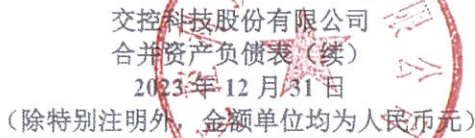 交控科技股份有限公司
合并资产负债表（续）
2023 年 12 月 31 日
（除特别注明外，金额单位均为人民币元